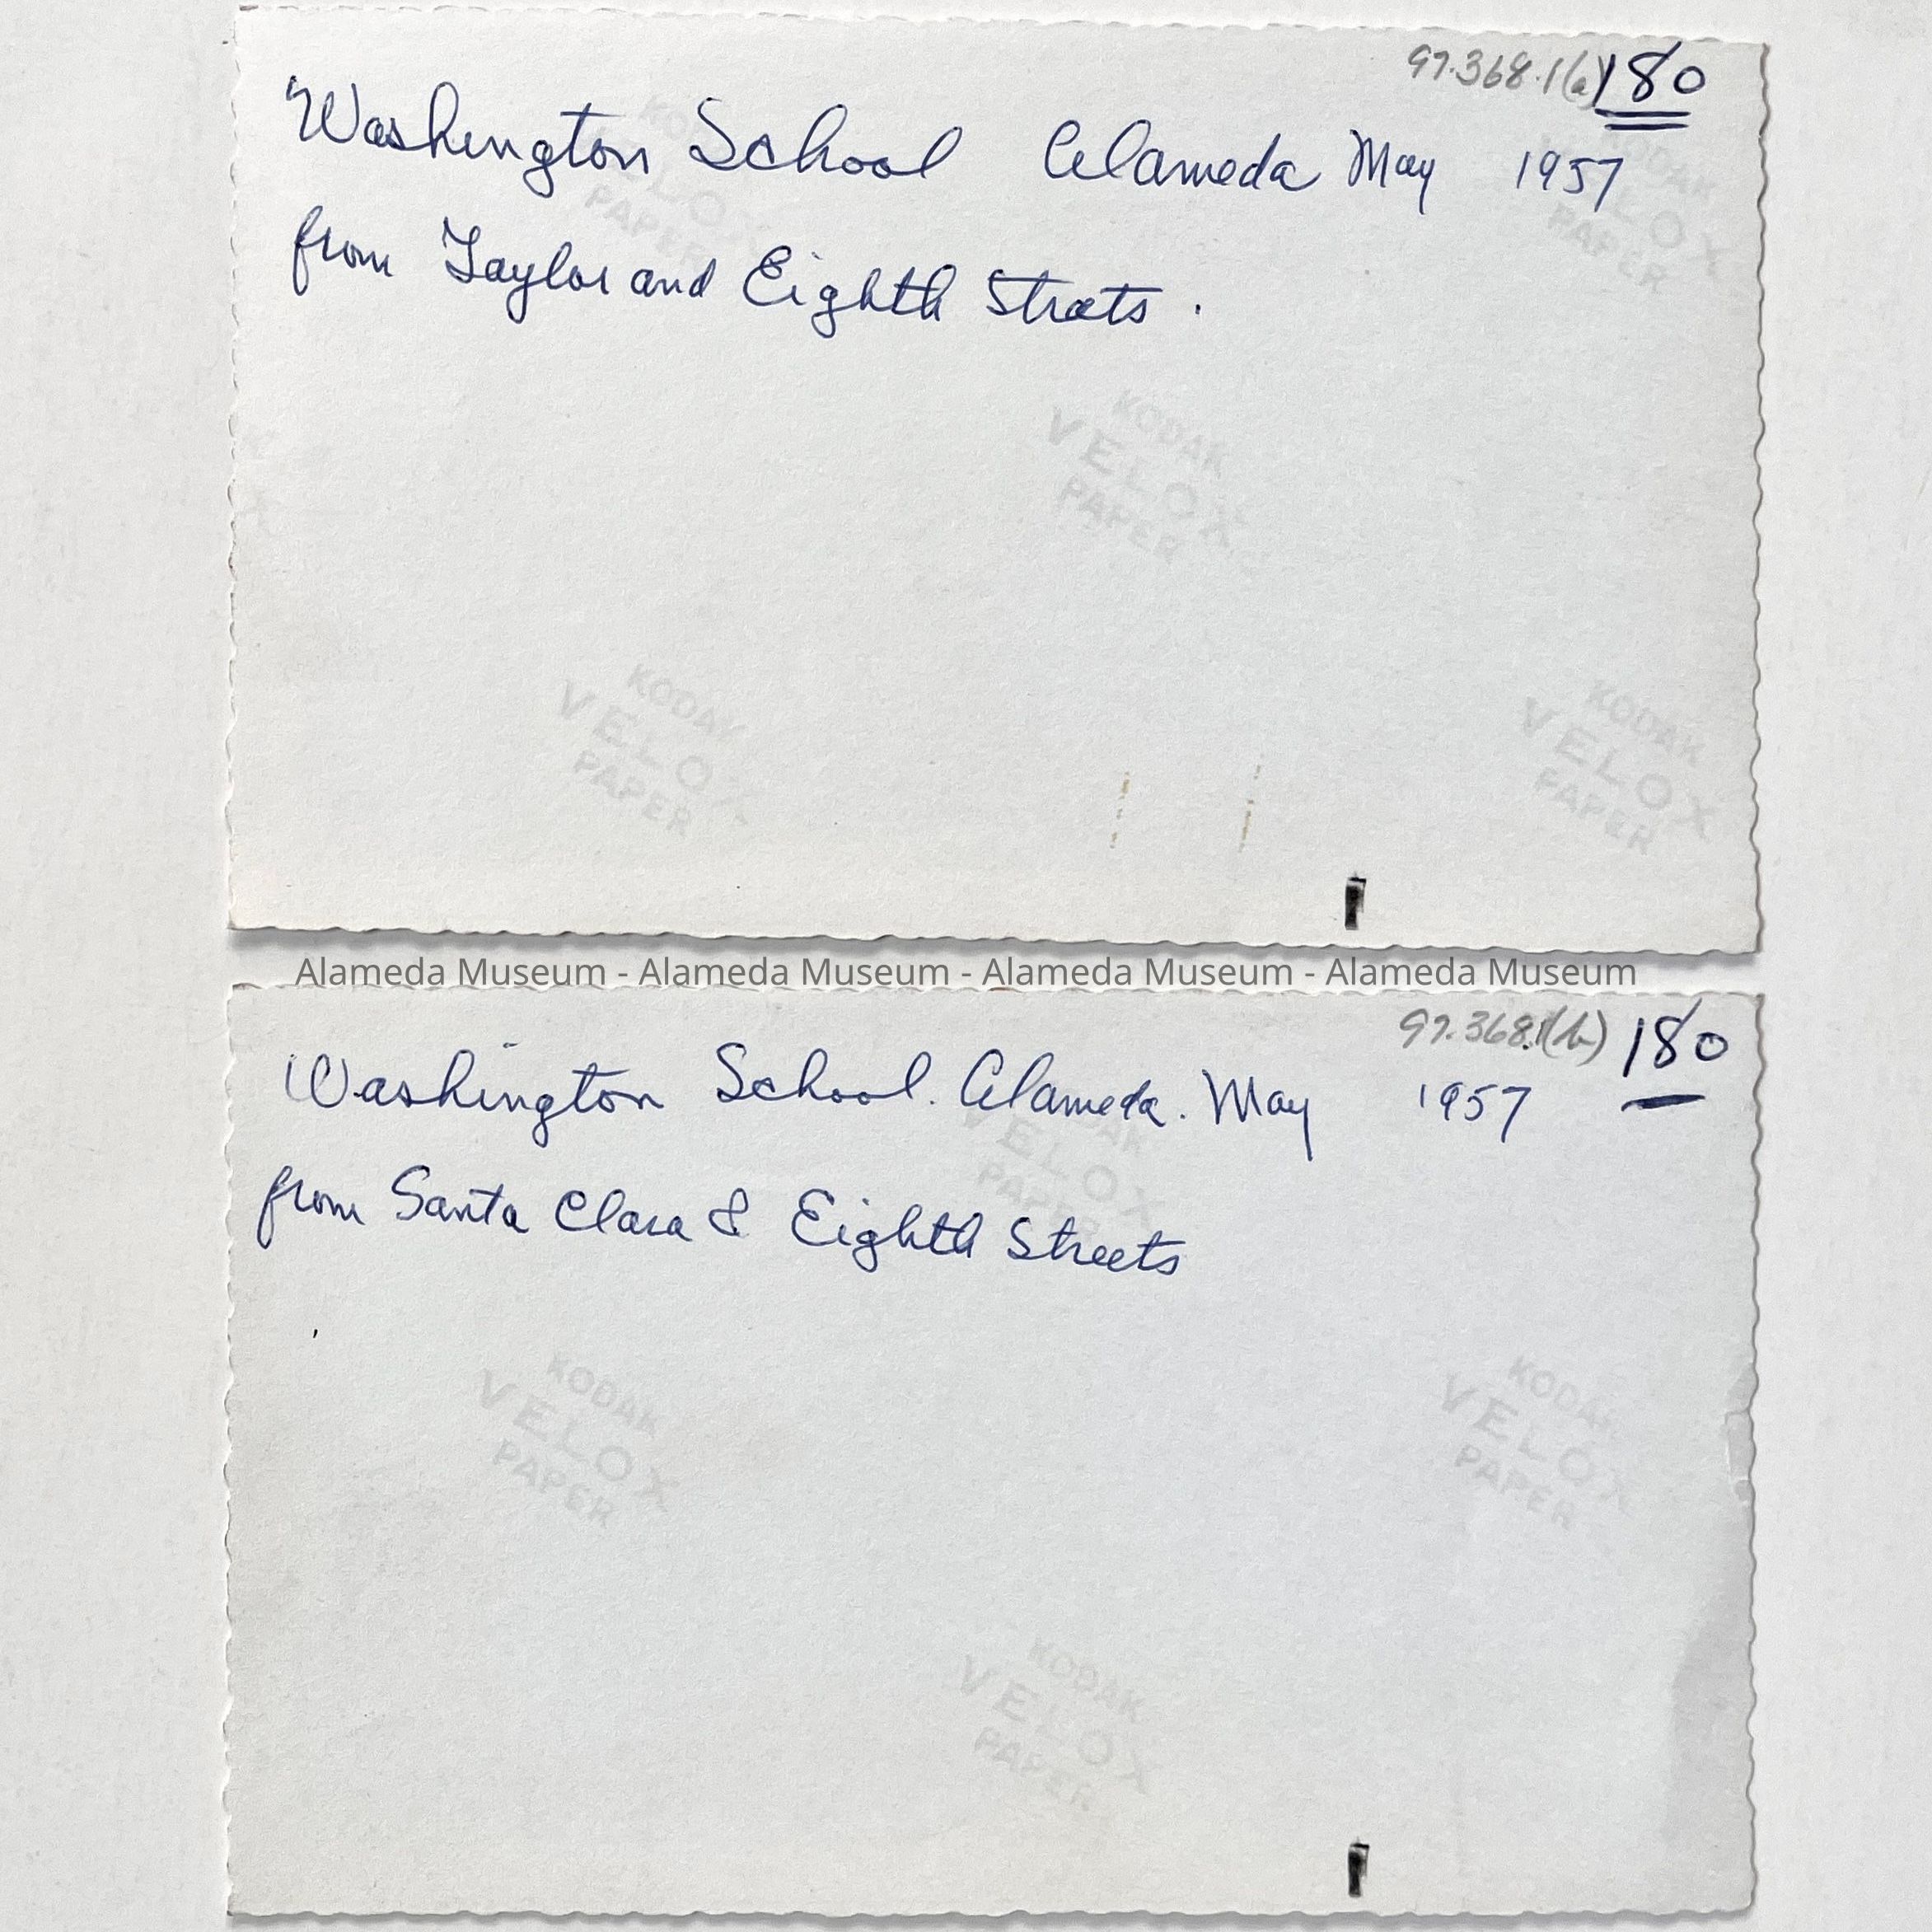 97.368.1(a) 180
Washington School Alameda May 1957
from Taylor and Eighth Streets.
KODAK
VELOX
PAPER
KODAK
VELOX
PAPER
KODAK
VELOX
PAPER
KODAK
VELOX
PAPER
KODAK
VELOX
PAPER
Alameda Museum - Alameda Museum - Alameda Museum - Alameda Museum
97.368.1(b) 180
Washington School. Alameda. May 1957
from Santa Clara & Eighth Streets
KODAK
VELOX
PAPER
KODAK
VELOX
PAPER
KODAK
VELOX
PAPER
KODAK
VELOX
PAPER